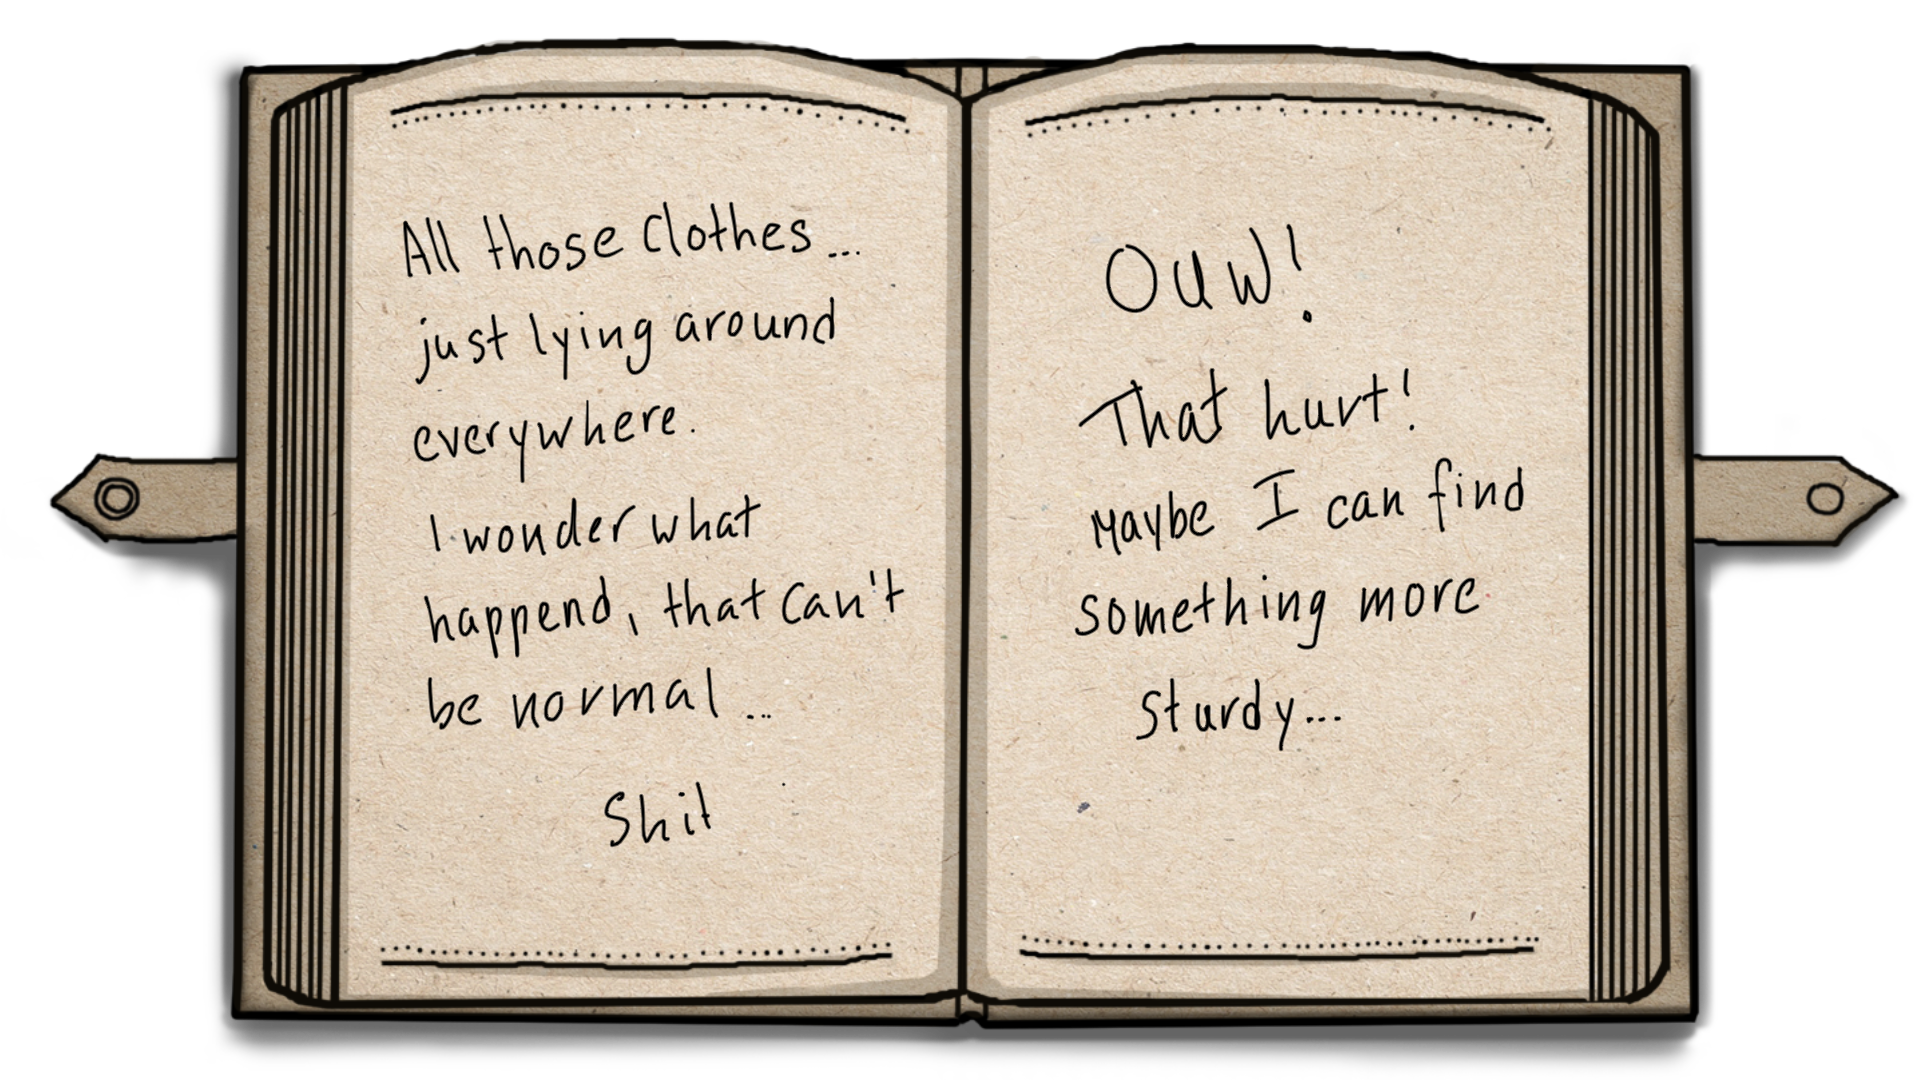 All those clothes...
just lying around
everywhere.
I wonder what
happend, that can't
be normal...
Shit
OUW!
That hurt!
Maybe I can find
something more
sturdy...